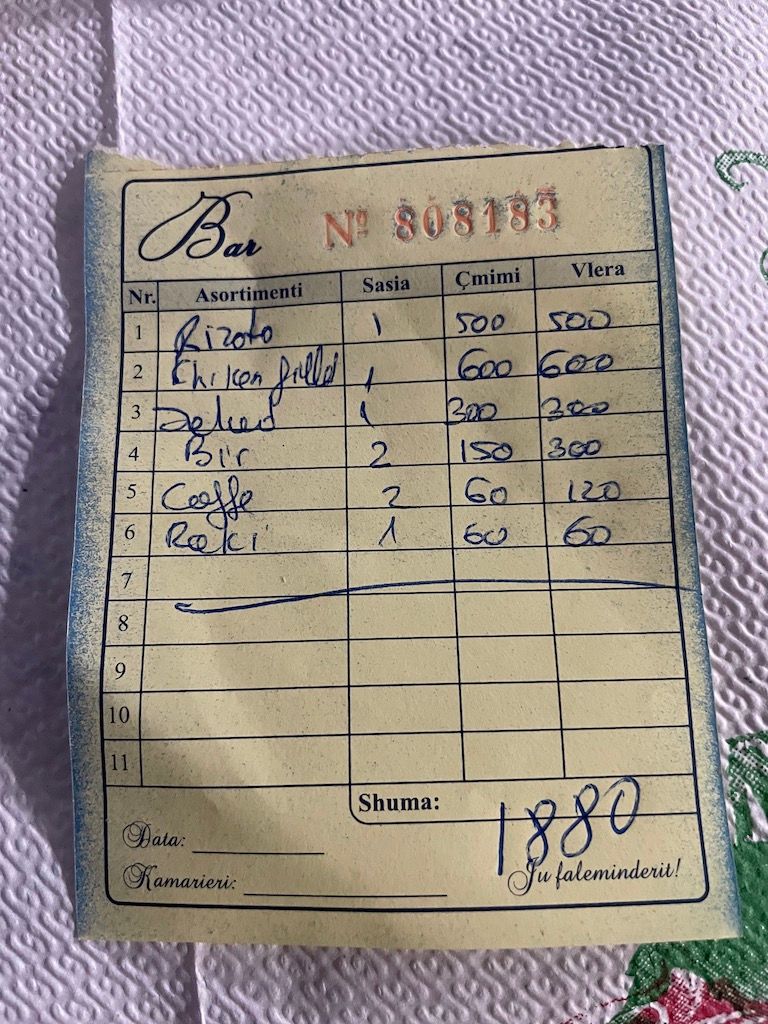 Bar Nº 808183
Nr. Asortimenti Sasia Çmimi Vlera
1 Rizoto 1 500 500
2 Chiken fillet 1 600 600
3 300 300
4 Bir 2 150 300
5 Caffe 2 60 120
6 Raki 1 60 60
7
8
9
10
11
Shuma: 1880
Data:
Kamarieri: Ju faleminderit!